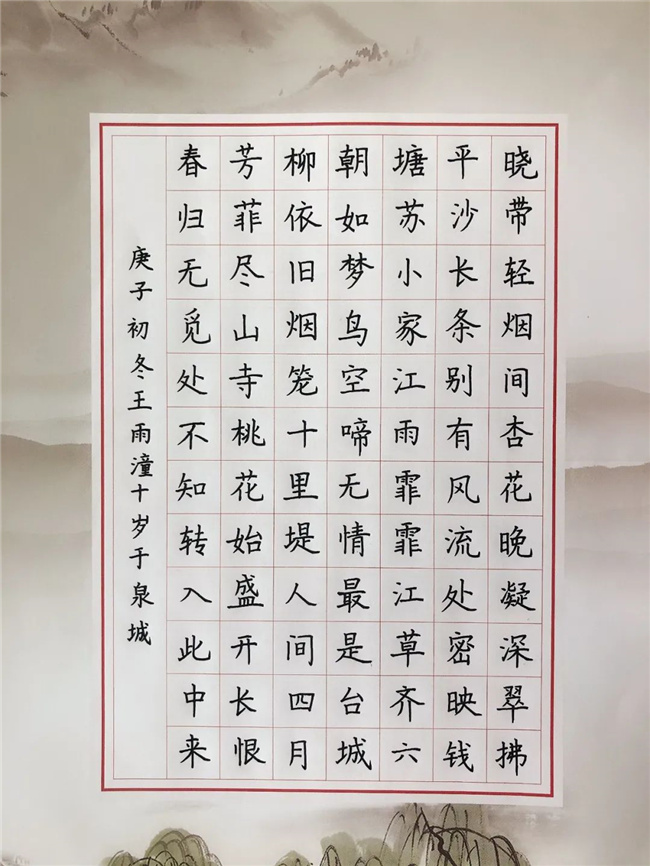 晓带轻烟间杏花晚凝深翠拂
平沙长条别有风流处密映钱
塘苏小家江雨霏霏江草齐六
朝如梦鸟空啼无情最是台城
柳依旧烟笼十里堤人间四月
芳菲尽山寺桃花始盛开长恨
春归无觅处不知转入此中来
庚子初冬王雨潼十岁于泉城